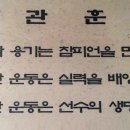 관 훈
용기는 챔피언을 만
운동은 실력을 배양
운동은 선수의 생명